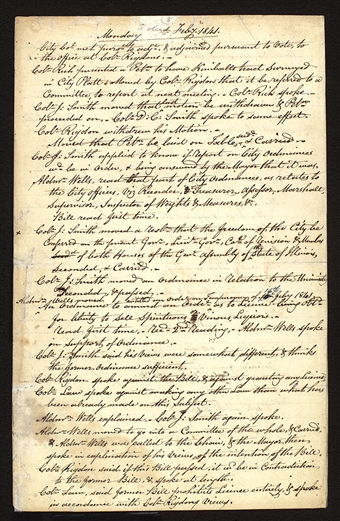 Monday 22nd Feby. 1841.
City Col. met, pursuant to adjt. & adjourned pursuant to Vote, to
the Office of Col. Rigdon.
Col. Rich presented a Petn. of Heber Kimballs tract Surveyed
in City Platt & Moved by Col. Rigdon that it be refered to a
Committee, to report at next meeting. Col. Rich spoke
Col. J. Smith moved that motion be withdrawn & Petn.
proceeded on. Col. D. C. Smith spoke to same effect.
Col. Rigdon withdrew his Motion.
Moved that Petn. be laid on Table, Secd. & Carried.
Col. J. Smith applied to know if Report on City Ordinances
wd. be in Order, & being answered by the Mayor that it was,
Aldn. Wells, read that part of City Ordinances, as relates to
the City Offices, Viz Recorder, & Treasurer, Assessor, Marshall,
Supervisor, Inspector of Weights & Measures, &c.
Bill read first time.
Col. J. Smith moved a Resn. that the freedom of the City be
Confered on the present Govr., Lieut. Govr., Col. of Revision & Members
of both Houses of the Genl. Assembly of State of Illinois,
Seconded, & Carried.
Col. J. Smith moved an Ordinance in Relation to the University
Seconded, & passed,
Aldn. Wells moved 15th Feby 1841,
An Ordinance to amend
for liberty to sell Spirituous & Vinous Liquor.
Read first time, Rd. 2nd. Reading, Aldn. Wells spoke
in support, of Ordinance.
Col. J. Smith said his views were somewhat different, & thinks
the former Ordinance sufficient.
Col. Rigdon spoke against the Bill, & against granting any licence
Col. Law spoke against making any other Law than what has
been already made on this Subject.
Aldn. Wells explained. Col. J. Smith again spoke.
Aldn. Wells moved to go into a Committee of the whole, & Carried,
& Aldn. Wells was called to the Chair, & the Mayor, then,
spoke in explanation of his views, of the intention of the Bill.
Col. Rigdon said if this Bill passed, it wd. be in Contradiction
to the former Bill, & spoke at length.
Col. Law, said former Bill prohibits Licence entirely, & spoke
in accordance with Col. Rigdons Views.